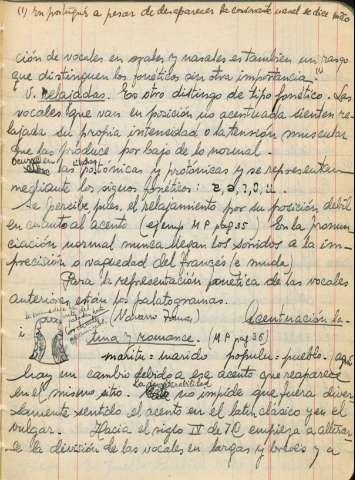 (1) En portugués a pesar de desaparecer la consonante nasal se dice
ción de vocales en orales y nasales es tambien un rasgo
que distinguen los foneticos sin otra importancia. (1)
5. Relajadas. Es otro distingo de tipo fonético. Las
vocales que van en posición no acentuada sienten re-
lajada su propia intensidad o la tensión muscular
que las produce por bajo de lo normal.
las postónicas y protónicas y se representan
mediante los signos fonéticos:
Se percibe, pues, el relajamiento por su posición débil
en cuanto al acento (ejemp. M P pag 35) En la pronun-
ciación normal nunca llegan los sonidos a la im-
precisión o vaguedad del francés (e muda)
Para la representación fonética de las vocales
anteriores están los palatogramas.
(Navarro Tomas) Acentuación la-
i tina y romance. (M P pag 36)
maritu = marido populu = pueblo. aquí
hay un cambio debido a ese acento que reaparece
en el mismo sitio. no impide que fuera diver-
samente sentido el acento en el latín clásico y en el
vulgar. Hacia el siglo IV de JC empieza a alterar-
se la división de las vocales en largas y breves y a